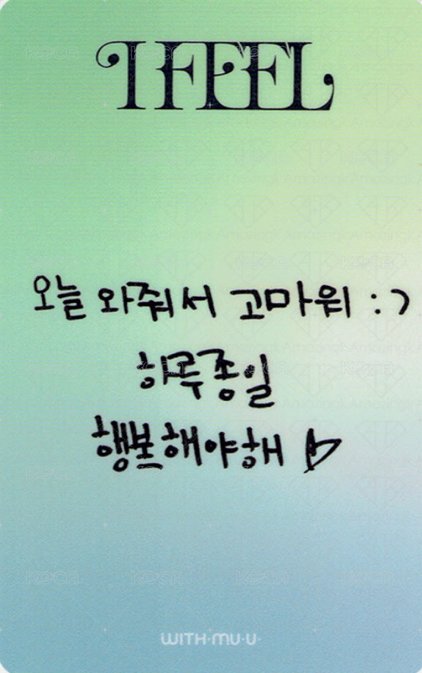 I FEEL
오늘 와줘서 고마워 :)
하루종일
행복해야해 ♡
WITH·MU·U·